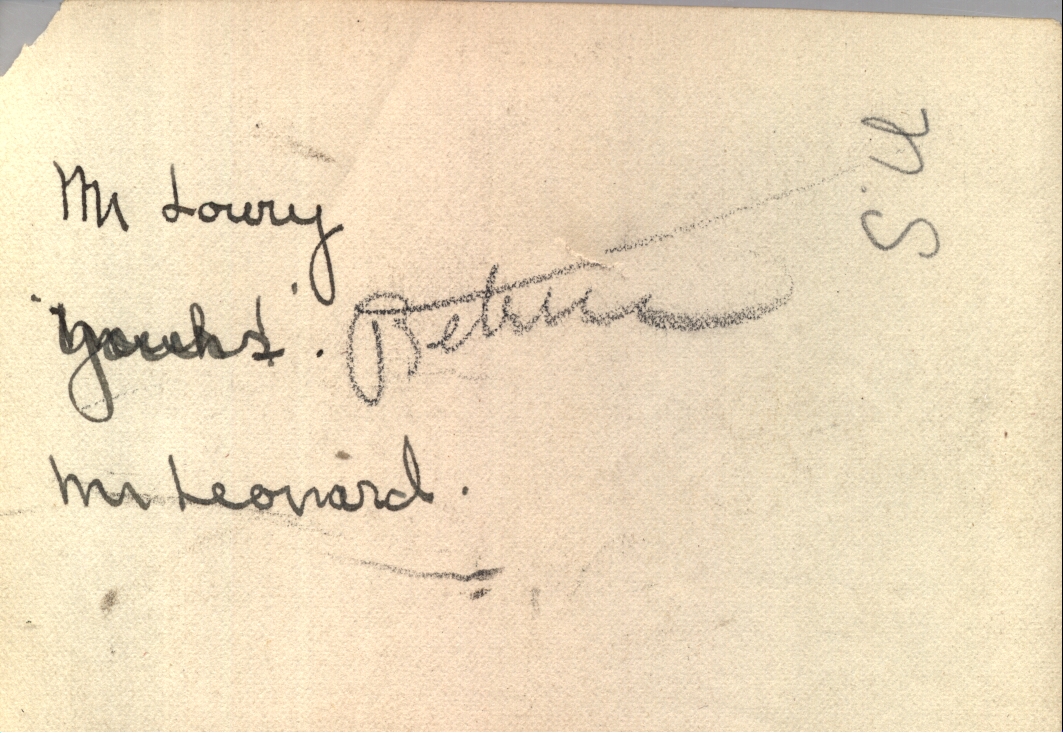 Mr Lowry
'Youks'. Return
Mr Leonard.
S.U